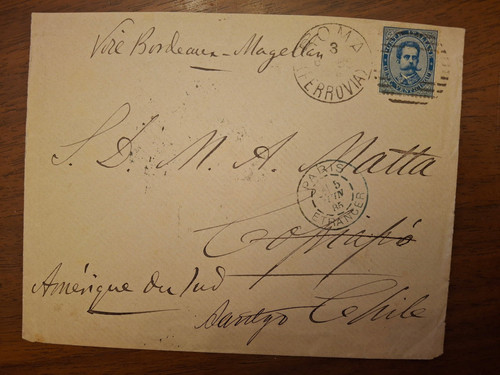 Viâ Bordeaux-Magellan
ROMA
3
(FERROVIA)
S. D. M. A. Matta
PARIS
5
JUIN
ETRANGER
Copiapó
Amérique du Sud
Santiago Chile